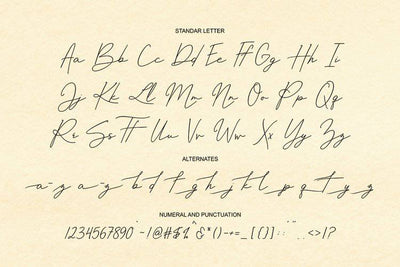 STANDAR LETTER
Aa Bb Cc Dd Ee Ff Gg Hh Ii
Jj Kk Ll Mm Nn Oo Pp Qq
Rr Ss Tt Uu Vv Ww Xx Yy Zz
ALTERNATES
a g a g b d f g h j k l p q t y z
NUMERAL AND PUNCTUATION
1234567890 ~!@#$% ^ &*()-+=_[{}] : ; " <>|?